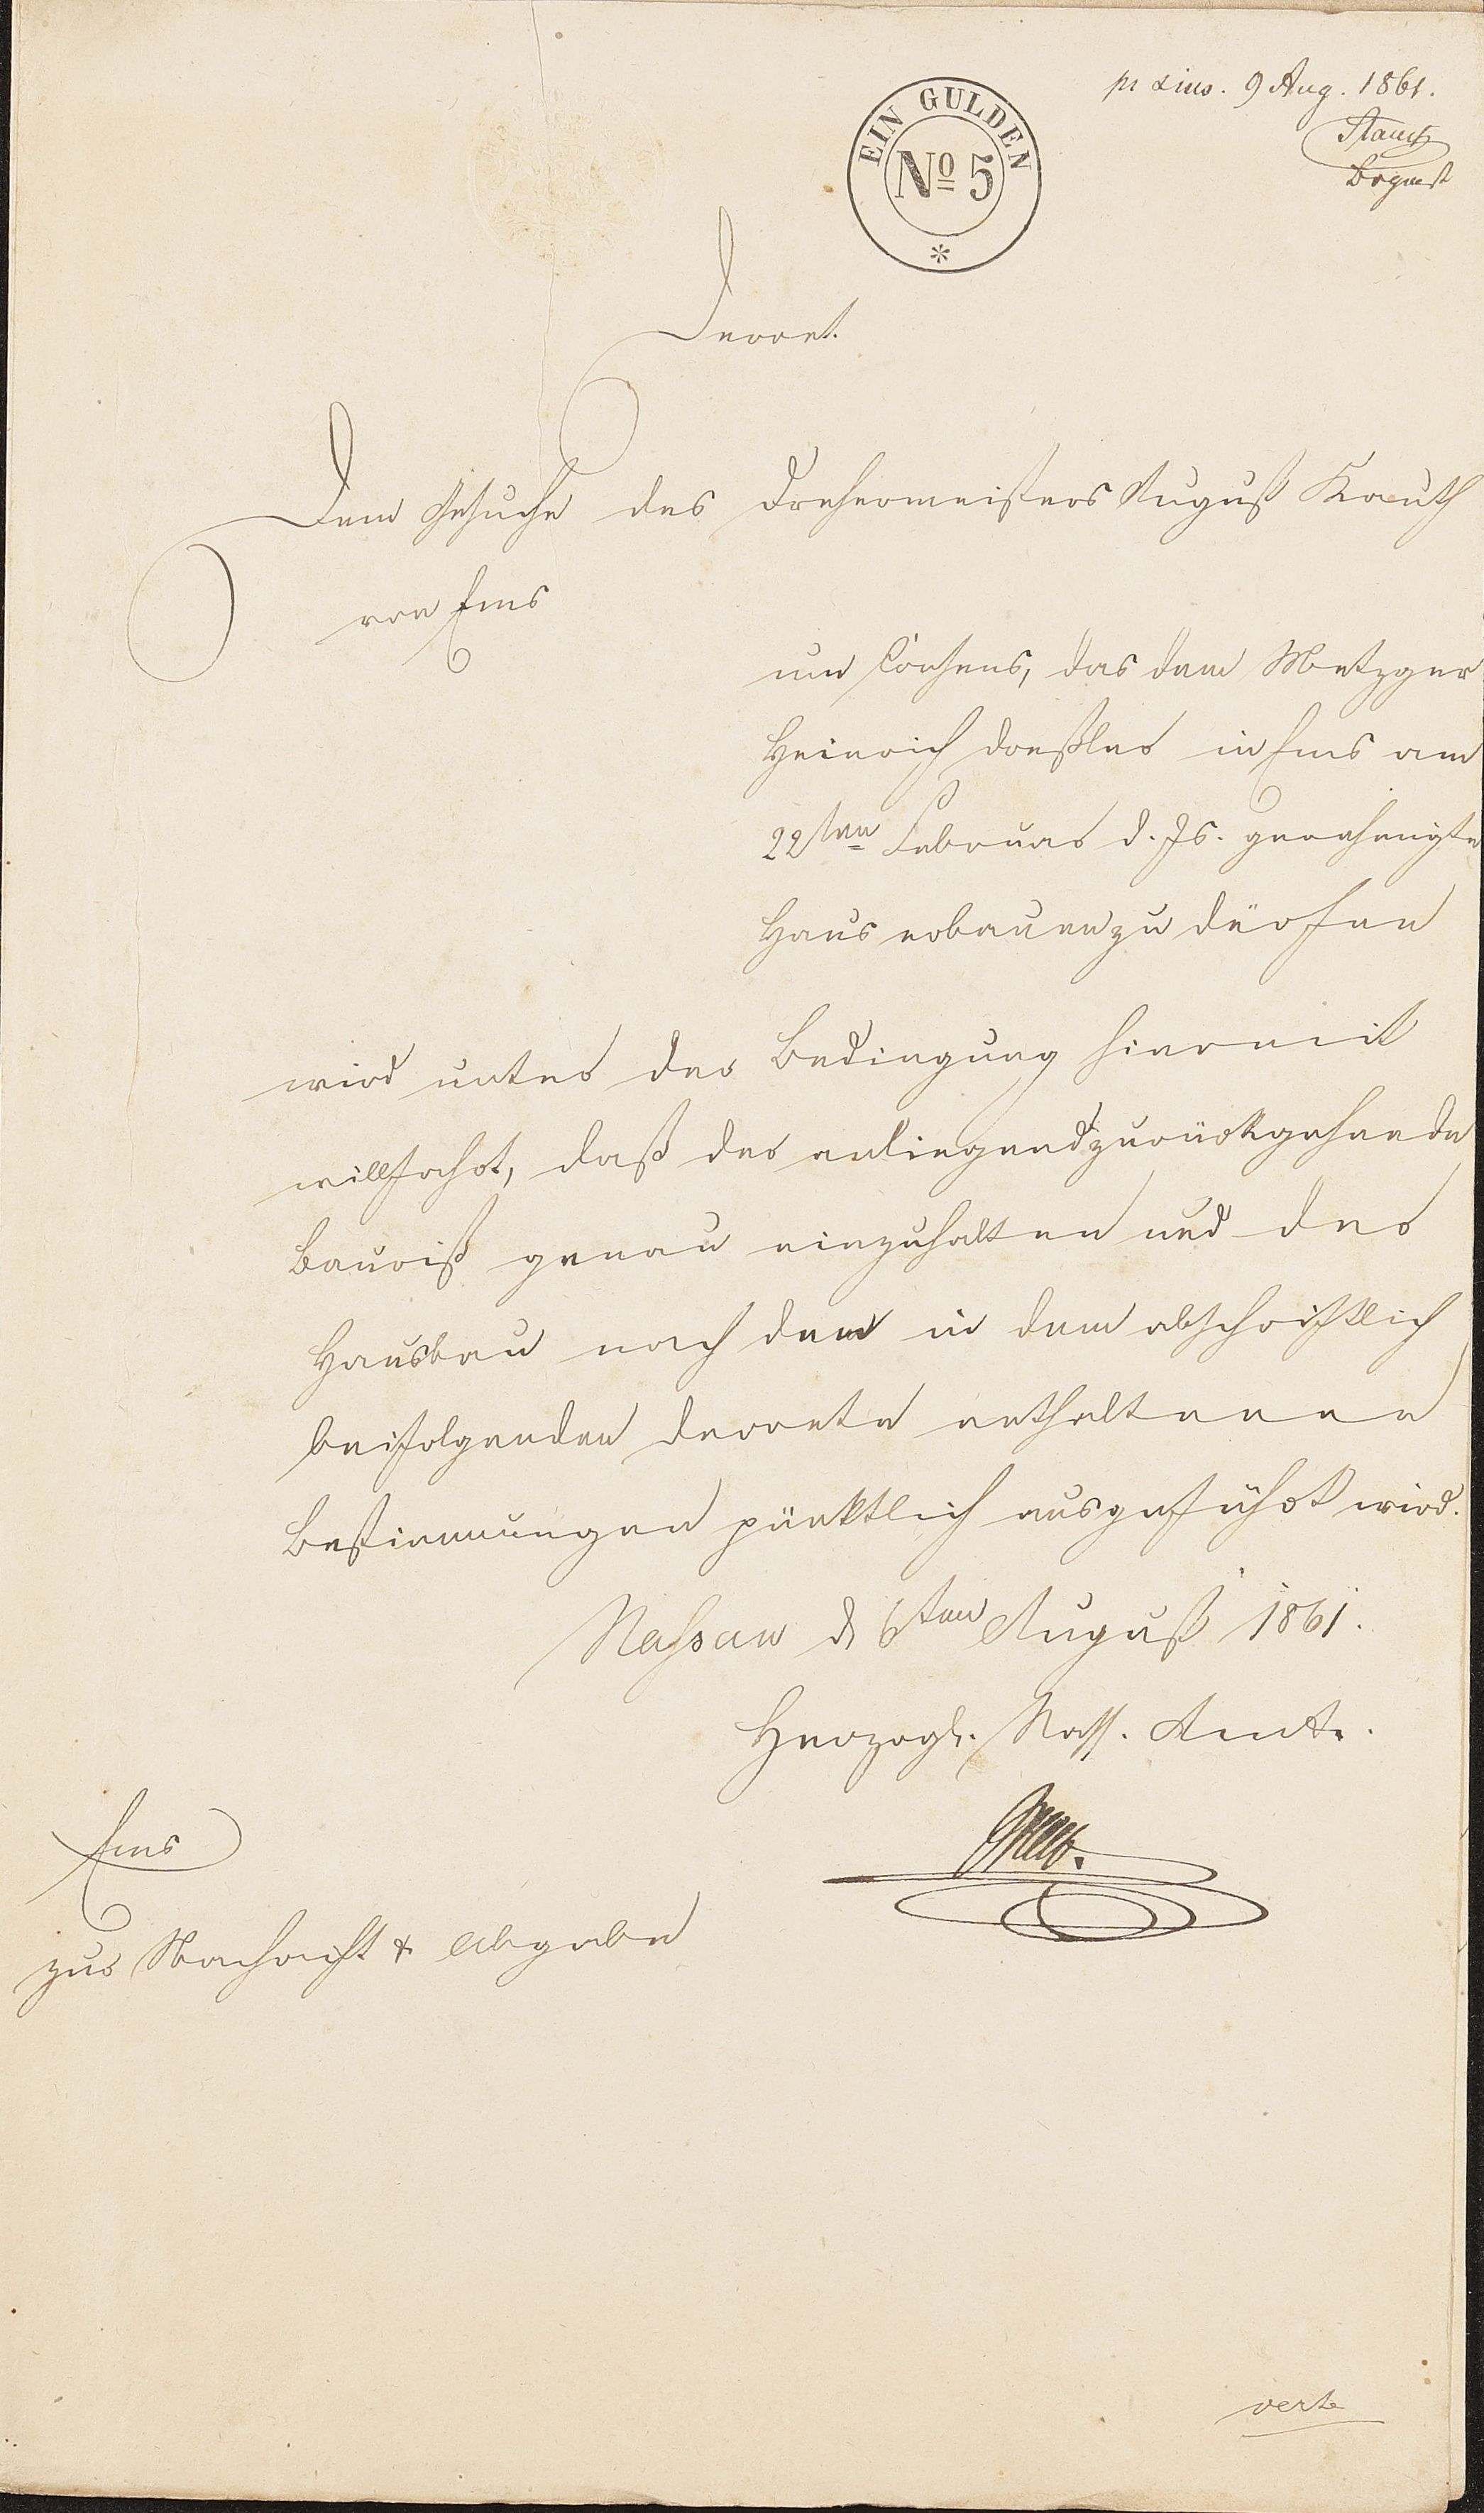 9 Aug. 1861.
EIN GULDEN
No 5
Decret.
Dem Gesuche des Drehermeisters August Krauth
von Ems
um Consens, das dem Metzger
Heinrich in Ems am
22ten Februar d. Js. genehmigte
Haus erbauen zu dürfen
wird unter der Bedingung hiermit
willfahrt, daß der anliegend zurückgehende
Bauriß genau einzuhalten und der
Hausbau nach den in dem abschriftlich
beifolgenden Decrete enthaltenen
Bestimmungen pünktlich ausgeführt wird.
Nassau d 6ten August 1861.
Herzogl. Nass. Amt.
Ems
zur Nachricht & Abgabe
verte